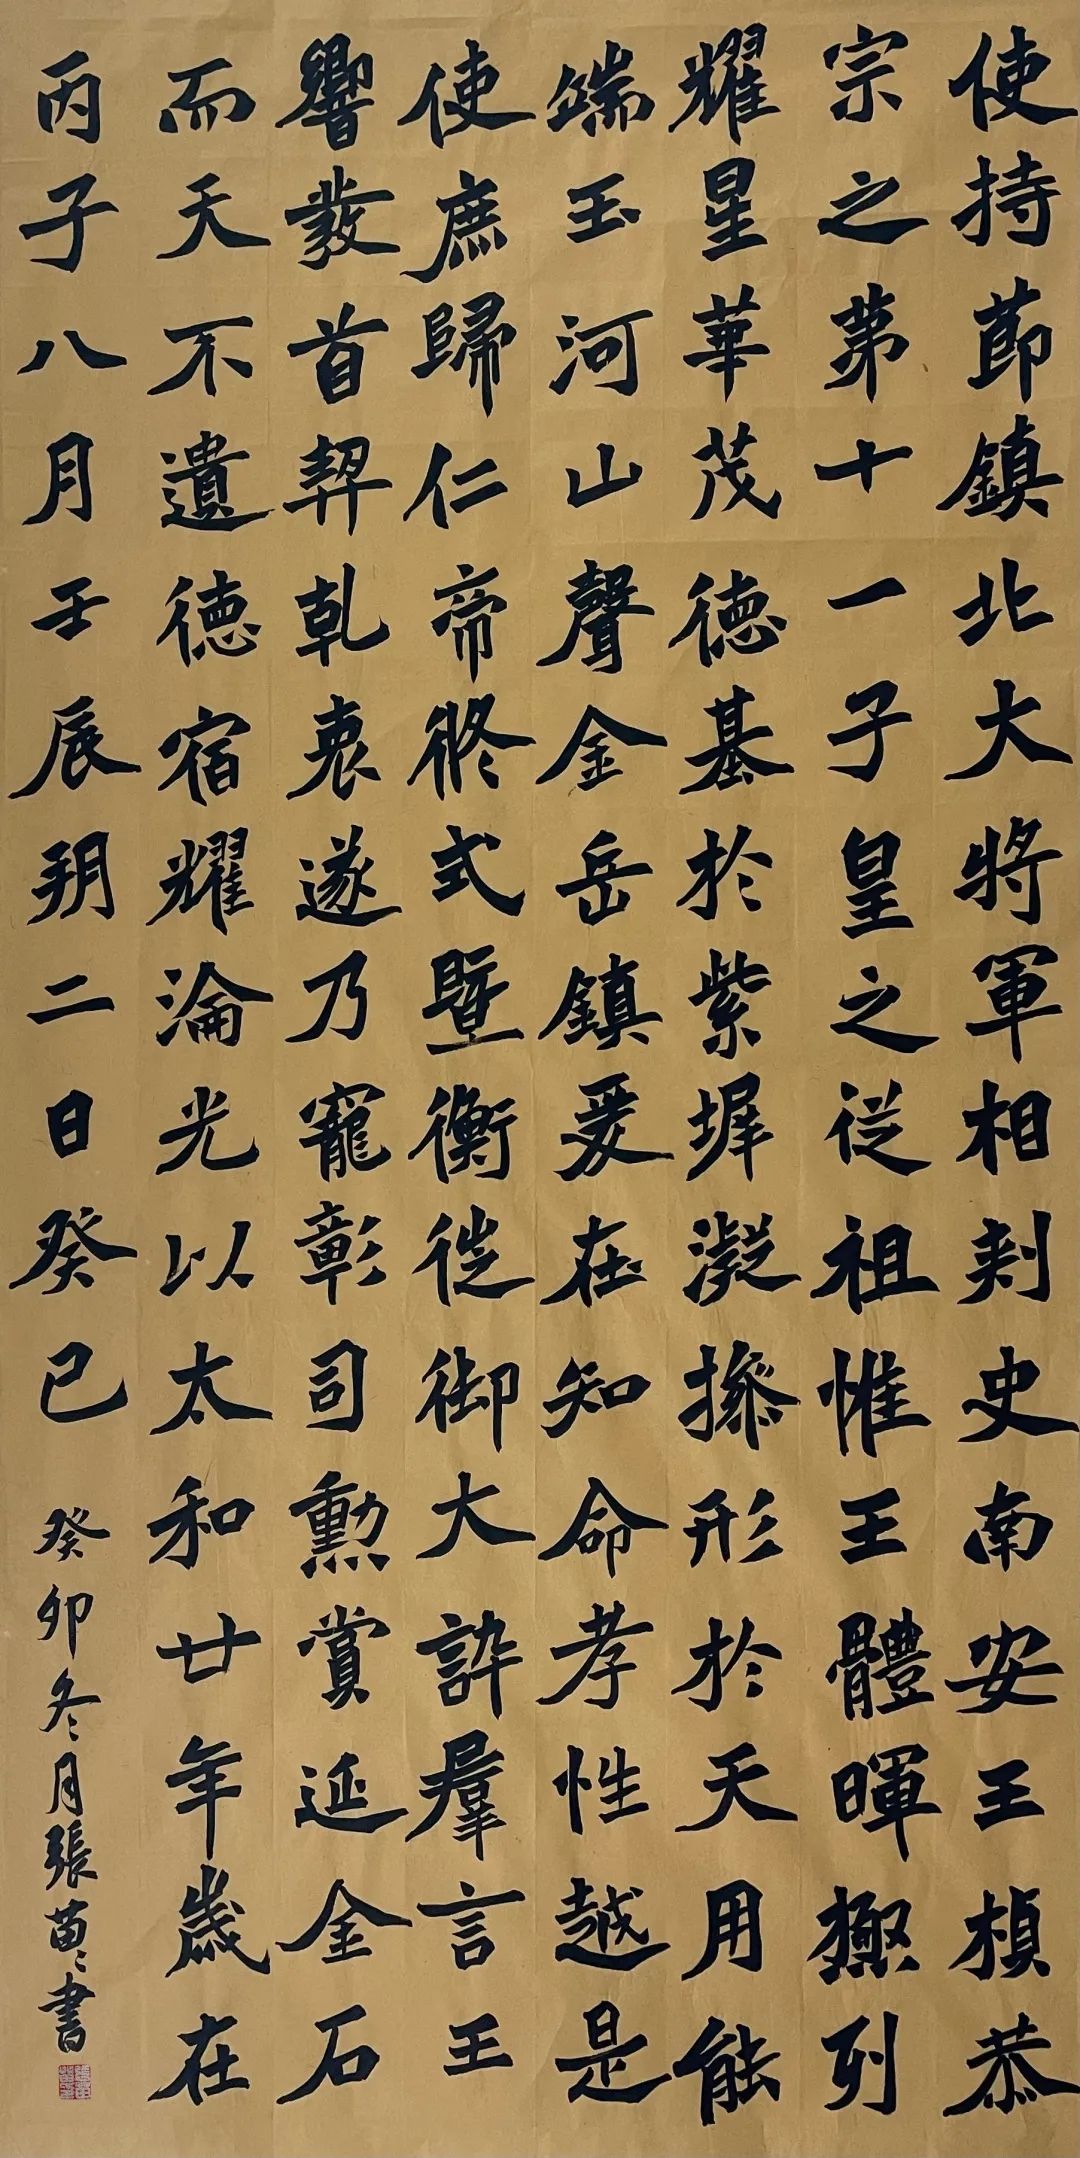 使持節鎮北大將軍相刾史南安王楨恭
宗之第十一子皇之從祖惟王體暉極列
耀星華茂德基於紫墀凝操形於天用能
端玉河山聲金岳鎮爰在知命孝性越是
使庶歸仁帝攸式暨衡從御大訊羣言王
響發首契乾衷遂乃寵彰司勳賞延金石
而天不遺德宿耀淪光以太和廿年歲在
丙子八月壬辰朔二日癸巳
癸卯冬月張苗〻書